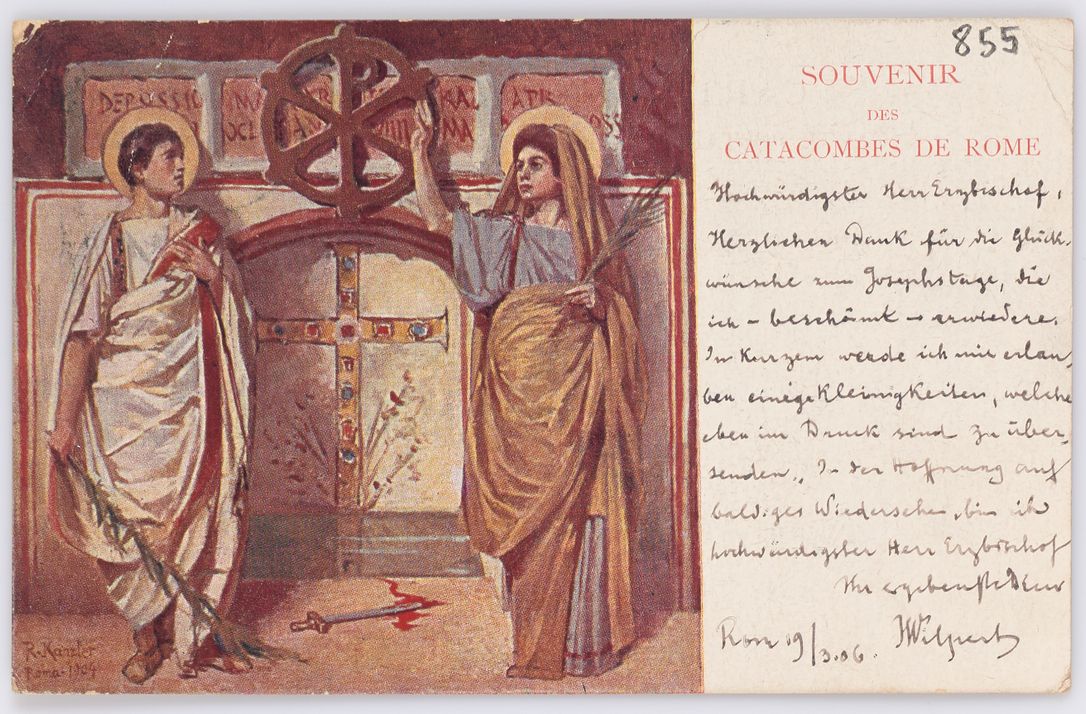 855
SOUVENIR
DES
CATACOMBES DE ROME
Hochwürdigster Herr Erzbischof,
Herzlichen Dank für die Glück-
wünsche zum Josephstage, die
ich – beschämt – erwiedere.
In Kurzem werde ich mir erlau
ben einige Kleinigkeiten, welche
eben im Druck sind zu über-
senden. In der Hoffnung auf
baldiges Wiedersehen, bin ich
hochwürdigster Herr Erzbischof
Ihr ergebenster
Rom 19/3.06. JWilpert
DEPOSSIO
R. Kanzler
Roma-1904